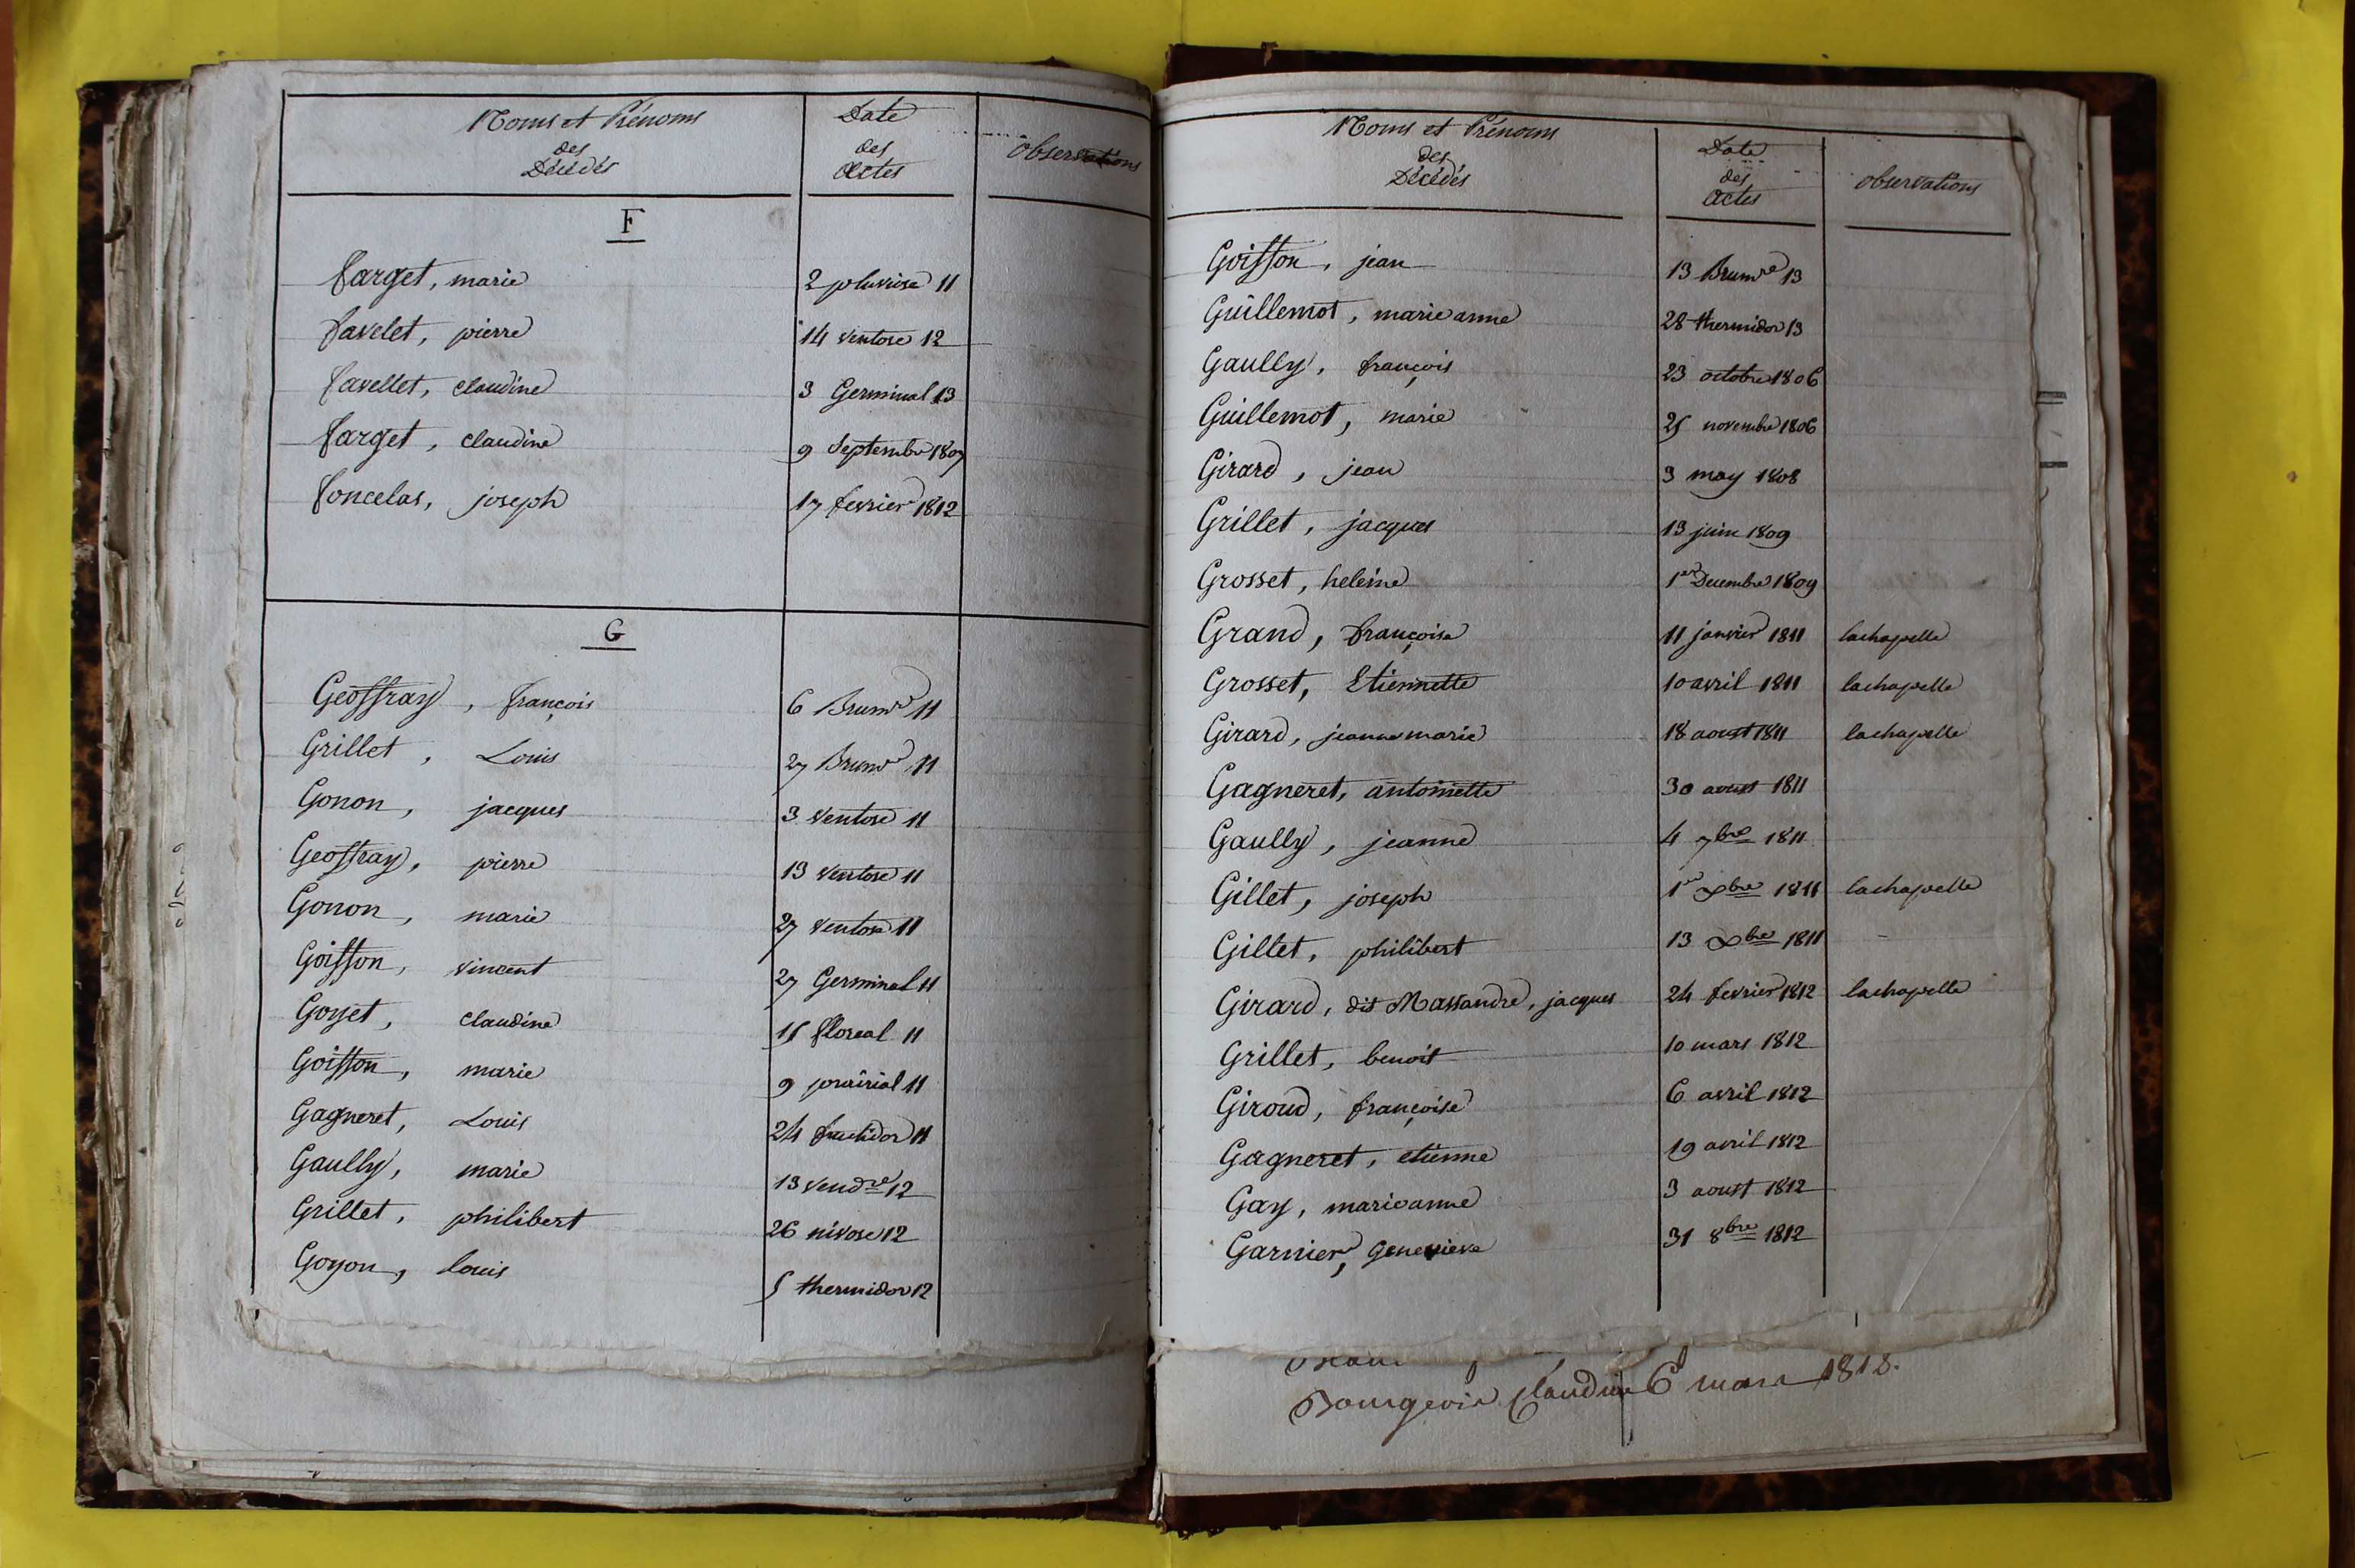 Noms et Prénoms
des
Décédés
Date
des
Actes
Observations
F
farget, marie 2 pluviose 11
favelet, pierre 14 ventose 12
favellet, claudine 3 Germinal 13
farget, claudine 9 Septembre 1807
foncelas, joseph 17 fevrier 1812
G
Geoffray, françois 6 Brumre 11
Grillet, Louis 27 Brumre 11
Gonon, jacques 3 ventose 11
Geoffray, pierre 13 ventose 11
Gonon, marie 27 ventose 11
Goisson, vincent 27 Germinal 11
Goyet, claudine 15 floreal 11
Goisson, marie 9 prairial 11
Gagneret, Louis 24 fructidor 11
Gaully, marie 13 vendre 12
Grillet, philibert 26 nivose 12
Goyon, louis 5 thermidor 12
Noms et Prénoms
des
Décédés
Date
des
Actes
Observations
Goisson, jean 13 Brumre 13
Guillemot, marie anne 28 thermidor 13
Gaully, françois 23 octobre 1806
Guillemot, marie 25 novembre 1806
Girard, jean 3 may 1808
Grillet, jacques 13 juin 1809
Grosset, heleine 1er Decembre 1809
Grand, françoise 11 janvier 1811 lachapelle
Grosset, Etiennette 10 avril 1811 lachapelle
Girard, jeanne marie 18 aoust 1811 lachapelle
Gagneret, antoinette 30 aoust 1811
Gaully, jeanne 4 7bre 1811
Gillet, joseph 1er Xbre 1811 lachapelle
Gillet, philibert 13 Xbre 1811
Girard, dit Massandre, jacques 24 fevrier 1812 lachapelle
Grillet, benoit 10 mars 1812
Giroud, françoise 6 avril 1812
Gagneret, etienne 19 avril 1812
Gay, marie anne 3 aoust 1812
Garnier, Genevieve 31 8bre 1812
Bourgeois Claudine 6 mars 1818.